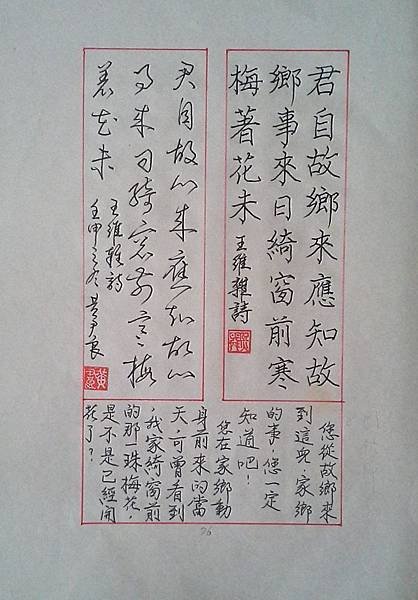 君自故鄉來應知故
鄉事來日綺窗前寒
梅著花未
王維雜詩
君自故鄉來應知故鄉
事來日綺窗前寒梅
著花未
王維雜詩
壬申之冬
您從故鄉來
到這兒,家鄉
的事,您一定
知道吧!
您在家鄉動
身前來的當
天,可曾看到
,我家綺窗前
的那一珠梅花,
是不是已經開
花了?